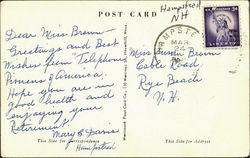 POST CARD
Hampstead
NH
Dear Miss Brown
Greetings and Best
Wishes from "Telephone
Pioneers of America.
Hope you are in
good health and
enjoying your
Retirement.
Mary E. Davis
Hampstead
HAMPSTE
MAR
24
3¢
Miss Brown
Cable Road,
Rye Beach
N. H.
This Side for Correspondence
This Side for Address